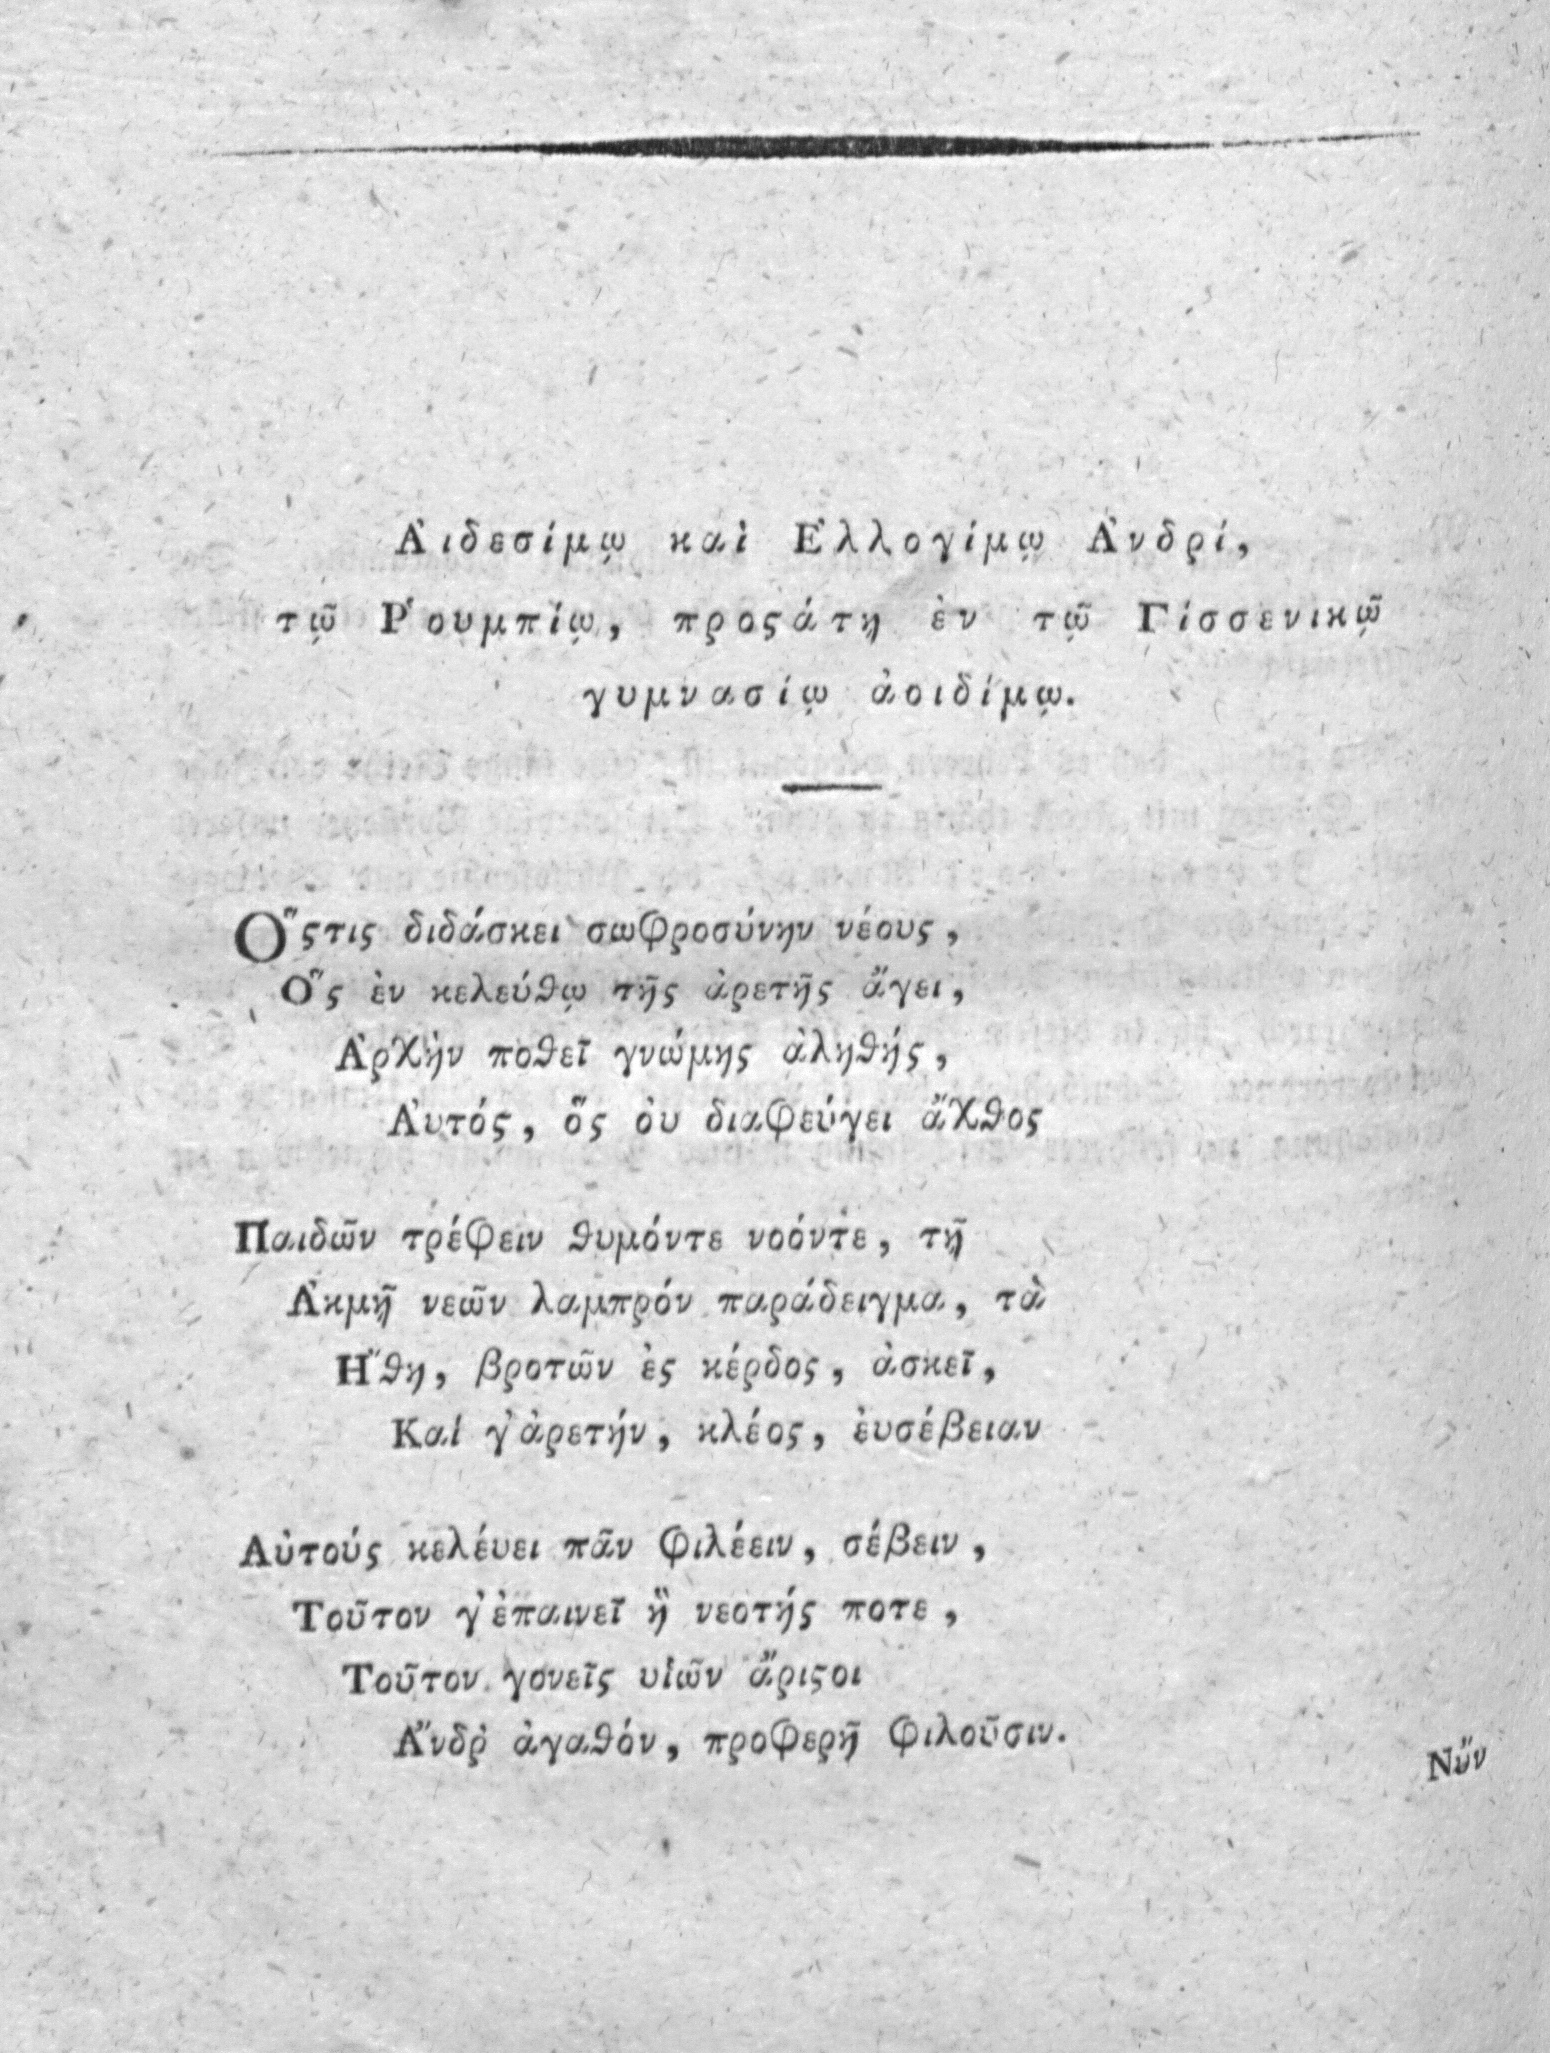 Ἀιδεσίμῳ καὶ Ἐλλογίμῳ Ἀνδρί,
τῷ Ῥουμπίῳ, προϛάτῃ ἐν τῷ Γίσσενικῷ
γυμνασίῳ ἀοιδίμῳ.
Ὅςτις διδάσκει σωφροσύνην νέους,
Ὃς ἐν κελεύθῳ τῆς ἀρετῆς ἄγει,
Ἀρχὴν ποθεῖ γνώμης ἀληθής,
Ἀυτός, ὃς ὀυ διαφεύγει ἄχθος
Παιδῶν τρέφειν θυμόντε νοόντε, τῇ
Ἀκμῇ νεῶν λαμπρόν παράδειγμα, τὰ
Ἤθη, βροτῶν ἐς κέρδος, ἀσκεῖ,
Καί γ᾽ἀρετήν, κλέος, ἐυσέβειαν
Αὐτούς κελέυει πᾶν φιλέειν, σέβειν,
Τοῦτον γ᾽ἐπαινεῖ ἣ νεοτής ποτε,
Τοῦτον γονεῖς υἱῶν ἄριϛοι
Ἄνδρ᾽ ἀγαθόν, προφερῆ φιλοῦσιν.
Νὔν